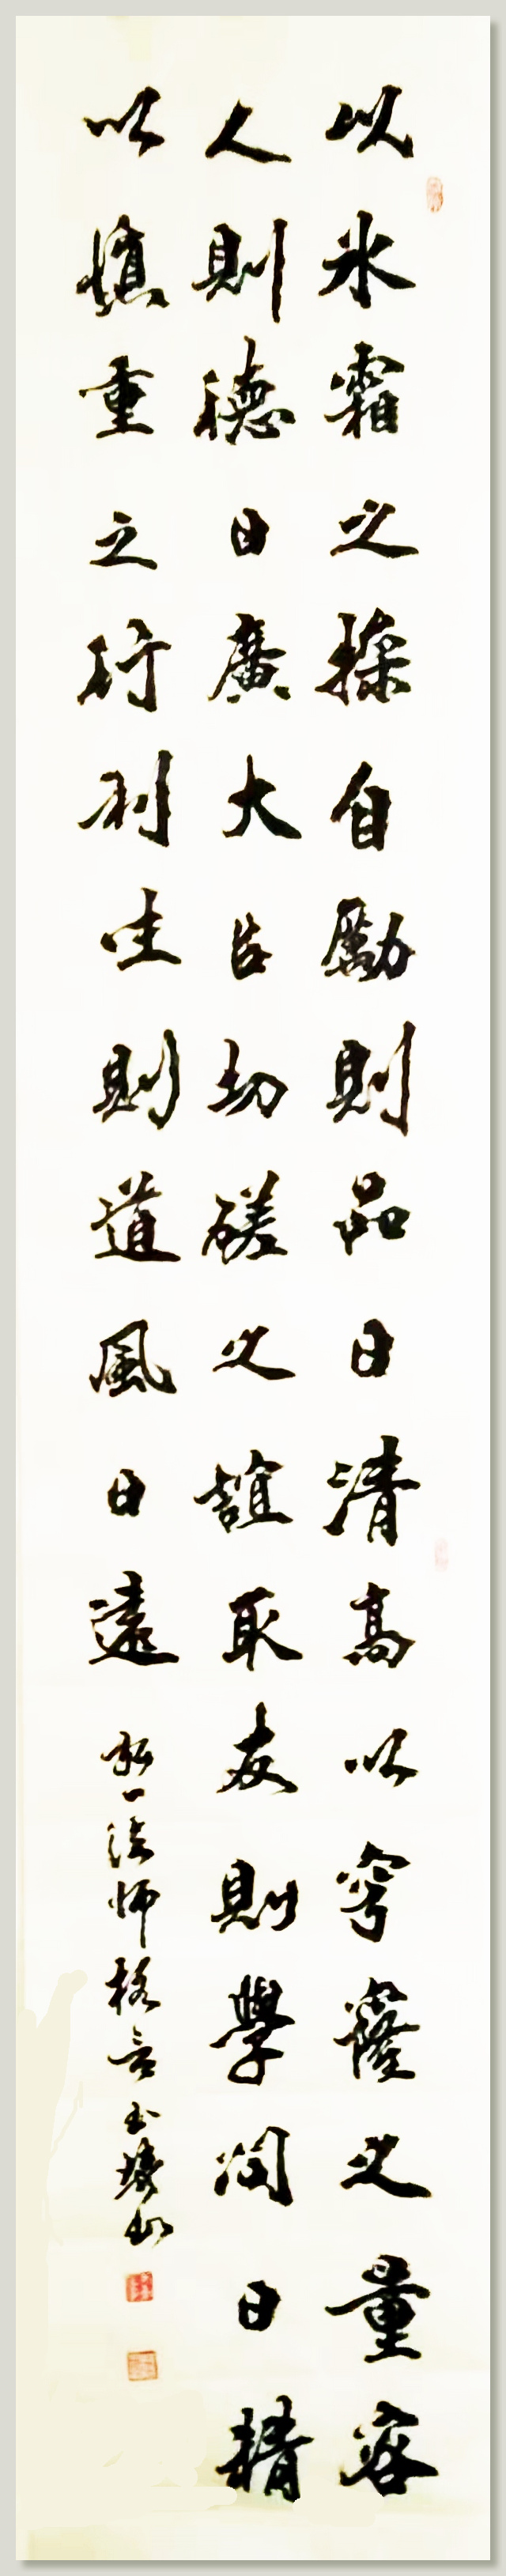 以氷霜之操自勵則品日清高以穹窿之量容
人則德日廣大㠯切磋之誼取友則學問日精
以慎重之行利生則道風日遠
弘一法師格言